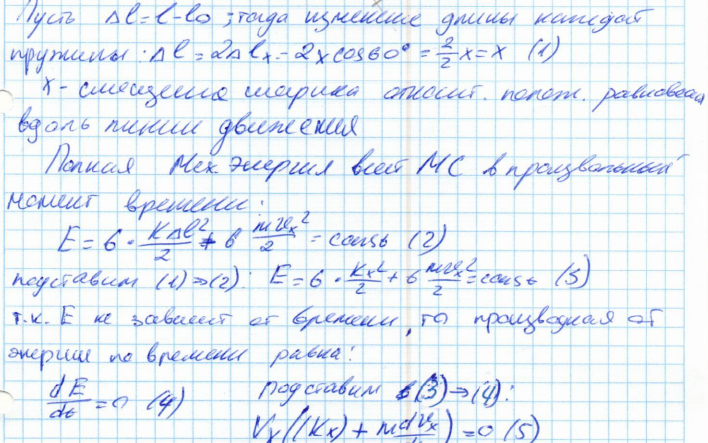 Пусть Δl = l - l₀, тогда изменение длины каждой
пружины: Δl = 2Δlₓ = 2x cos60° = 2/2 x = x (1)
x - смещение шарика относит. полож. равновесия
вдоль линии движения
Полная Мех Энергия всей МС в произвольный
момент времени:
E = 6 · KΔl²/2 + 6 mvₓ²/2 = const (2)
подставим (1)→(2): E = 6 · Kx²/2 + 6 mvₓ²/2 = const (3)
т.к. E не зависит от времени, то производная от
энергии по времени равна:
dE/dt = 0 (4) подставим (3)→(4):
Vₓ((Kx) + m dvₓ/dt) = 0 (5)